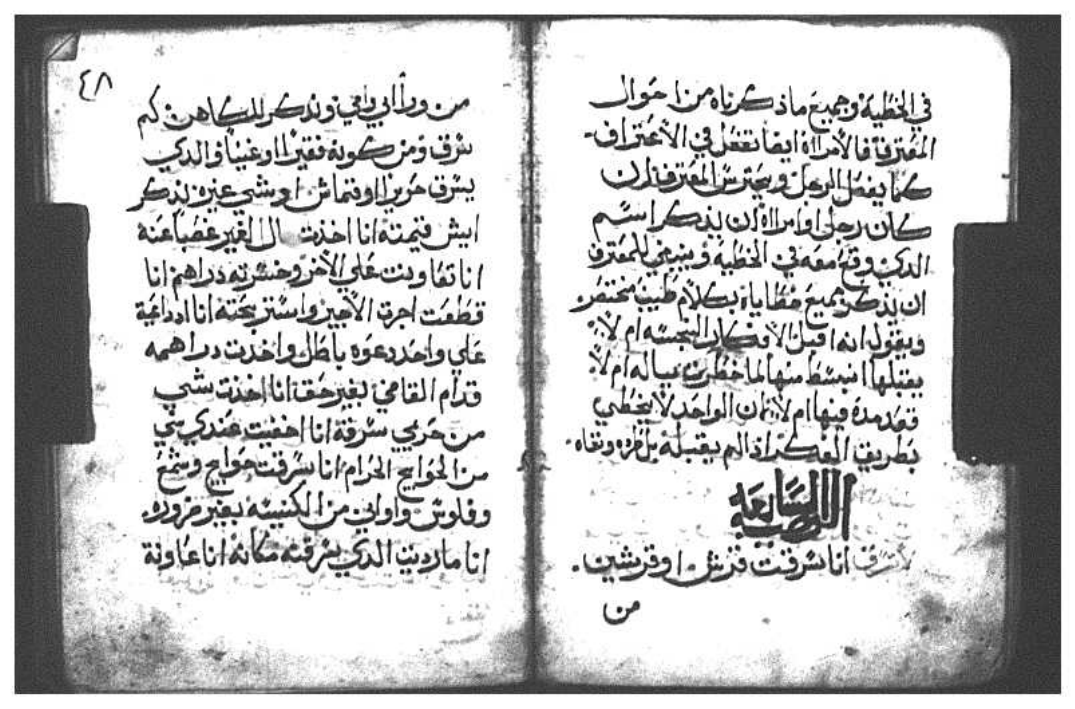 في الخطية وجميع ما ذكرناه من احوال
المعترفة فالأمراة ايضا تفعل في الأعتراف.
كما يفعل الرجل ويحترس المعترف ان
كان رجل او امراة ان يذكر اسم
الدي وقع معه في الخطية وينبغي للمعترف
ان يذكر جميع خطاياه بكلام طيب مختصر
ويقول انه اقبل الأفكار النجسه ام لا
يقبلها انبسط منها لما خطرت بباله ام لا
قعد مدة فيها ام لا لان الواحد لا يخطي
بطريق الفكر اذا لم يقبله بل طرده ونفاه.
السابعه
لا تسرق انا سرقت قرش او قرشين.
من
٤٨
من ورا ابي وامي ويذكر للكاهن كم
سرق ومن كونه فقيرا او غنيا والدي
يسرق حريرا او قماش او شي غيره يذكر
ايش قيمته انا اخذت مال الغير غصبا عنه
انا تعاونت علي الأخر وخسرته دراهم انا
قطعت اجرة الأجير واستربحته انا ادعية
علي واحد دعوه باطل واخدت دراهمه
قدام القاضي بغير حق انا اخدت شي
من حربي سرقة انا اخفيت عندي شي
من الحوايج الحرام انا سرقت حوايج وشمع
وفلوس واواني من الكنيسه بغير ضروره
انا ما رديت الدي سرقته مكانه انا عاونة